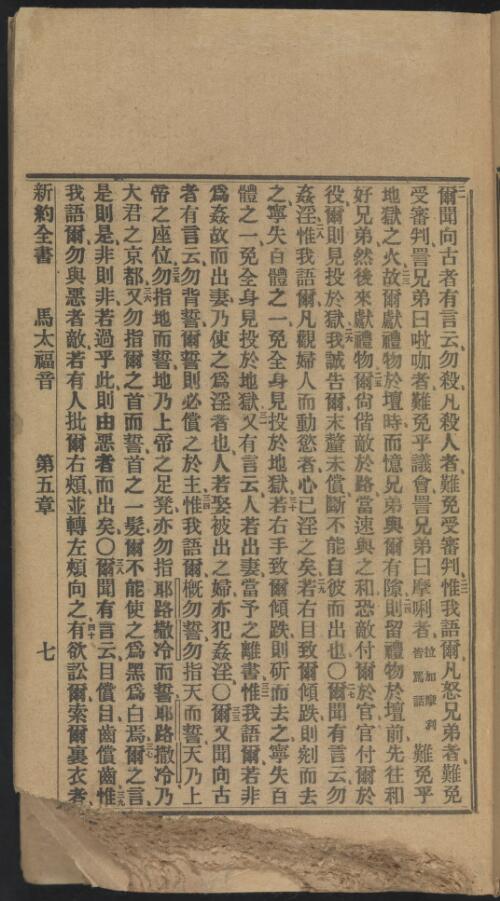 爾聞向古者有言云勿殺凡殺人者難免受審判惟我語爾凡怒兄弟者難免
受審判詈兄弟曰啦咖者難免乎議會詈兄弟曰摩唎者拉加摩利皆罵話難免乎
地獄之火故爾獻禮物於壇時而憶兄弟與爾有隙則留禮物於壇前先往和
好兄弟然後來獻禮物爾尙偕敵於路當速與之和恐敵付爾於官官付爾於
役爾則見投於獄我誠告爾末釐未償斷不能自彼而出也〇爾聞有言云勿
姦淫惟我語爾凡觀婦人而動慾者心已淫之矣若右目致爾傾跌則剜而去
之寧失百體之一免全身見投於地獄若右手致爾傾跌則斫而去之寧失百
體之一免全身見投於地獄又有言云人若出妻當予之離書惟我語爾若非
爲姦故而出妻乃使之爲淫者也人若娶被出之婦亦犯姦淫〇爾又聞向古
者有言云勿背誓爾誓則必償之於主惟我語爾槪勿誓勿指天而誓天乃上
帝之座位勿指地而誓地乃上帝之足凳亦勿指耶路撒冷而誓耶路撒冷乃
大君之京都又勿指爾之首而誓首之一髮爾不能使之爲黑爲白焉爾之言
是則是非則非若過乎此則由惡者而出矣〇爾聞有言云目償目齒償齒惟
我語爾勿與惡者敵若有人批爾右頰並轉左頰向之有欲訟爾索爾裏衣者
新約全書 馬太福音 第五章 七